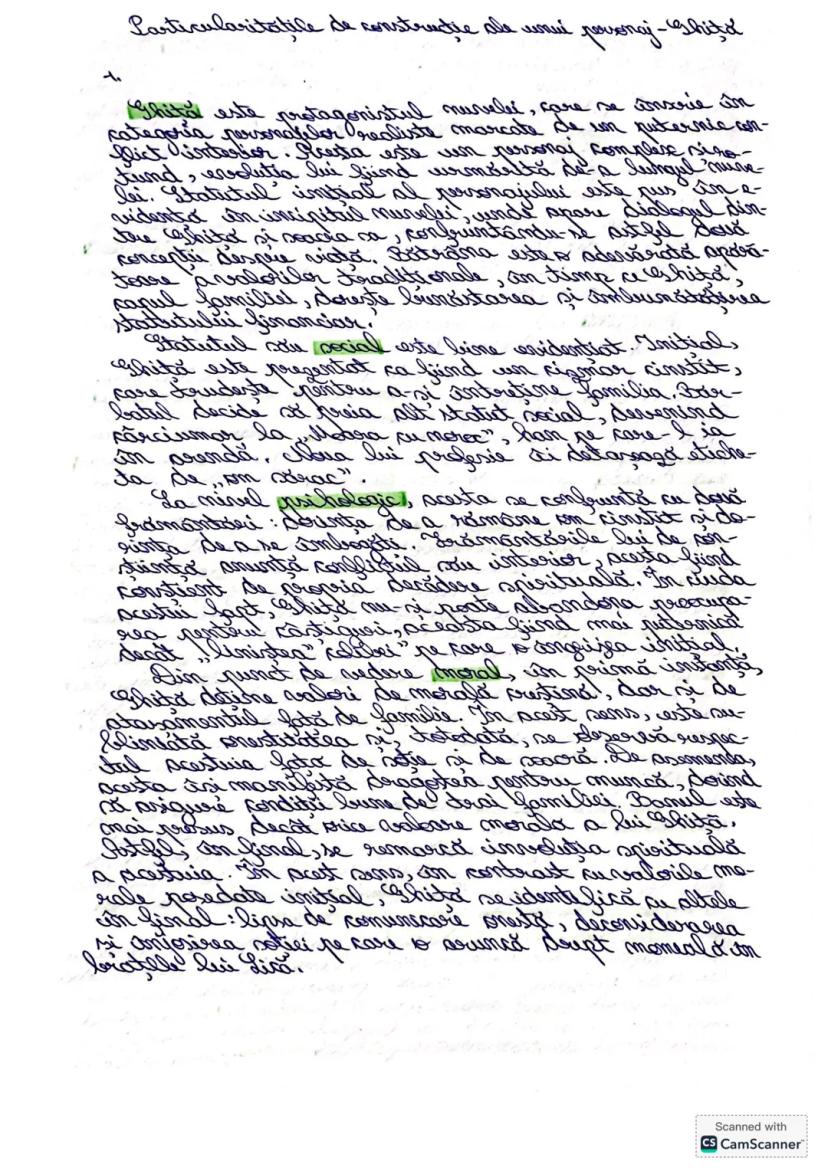 Particularitățile de construcție ale unui personaj - Ghiță
1.
Ghiță este protagonistul nuvelei, care se înscrie în
categoria personajelor realiste marcate de un puternic con-
flict interior. Acesta este un personaj complex și ro-
tund, evoluția lui fiind urmărită de-a lungul nuve-
lei. Statutul inițial al personajului este pus în e-
vidență în incipitul nuvelei, unde apare dialogul din-
tre Ghiță și soacra sa, confruntându-se astfel două
concepții despre viață. Bătrâna este o adevărată apără-
toare a valorilor tradiționale, în timp ce Ghiță,
capul familiei, dorește bunăstarea și îmbunătățirea
statutului financiar.
Statutul său social este bine evidențiat. Inițial,
Ghiță este prezentat ca fiind un cizmar cinstit,
care trudește pentru a-și întreține familia. Băr-
batul decide să preia alt statut social, devenind
cârciumar la „Moara cu noroc”, han pe care-l ia
în arendă. Noua lui profesie îi detașează etiche-
ta de „om sărac”.
La nivel psihologic, acesta se confruntă cu două
frământări: dorința de a rămâne om cinstit și do-
rința de a se îmbogăți. Frământările lui de con-
știență anunță conflictul său interior, acesta fiind
conștient de propria decădere spirituală. În ciuda
acestui fapt, Ghiță nu-și poate abandona preocupa-
rea pentru câștiguri, aceasta fiind mai puternică
decât „liniștea colibei” pe care o angija inițial.
Din punct de vedere moral, în primă instanță,
Ghiță deține valori de morală creștină, dar și de
atașamentul față de familie. În acest sens, este su-
bliniată onestitatea și, totodată, se observă respec-
tul acestuia față de soție și de soacră. De asemenea,
acesta își manifestă dragostea pentru muncă, dorind
să asigure condiții bune de trai familiei. Banul este
mai presus decât orice valoare morală a lui Ghiță.
Astfel, în final, se remarcă involuția spirituală
a acestuia. În acest sens, în contrast cu valorile mo-
rale posedate inițial, Ghiță se identifică cu altele
în final: lipsa de comunicare onestă, desconsiderarea
și înjosirea soției pe care o aruncă drept momeală în
brațele lui Lică.
Scanned with
CS CamScanner